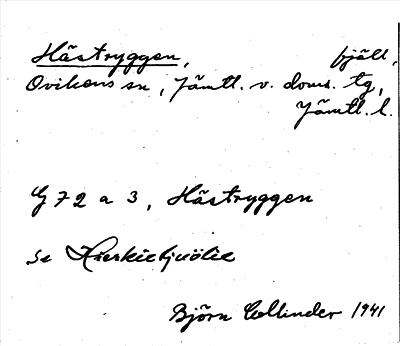 Hästryggen, fjäll,
Ovikens sn, Jämtl. v. doms. tg,
Jämtl. l.
G 72 a 3, Hästryggen
se
Björn Collinder 1941